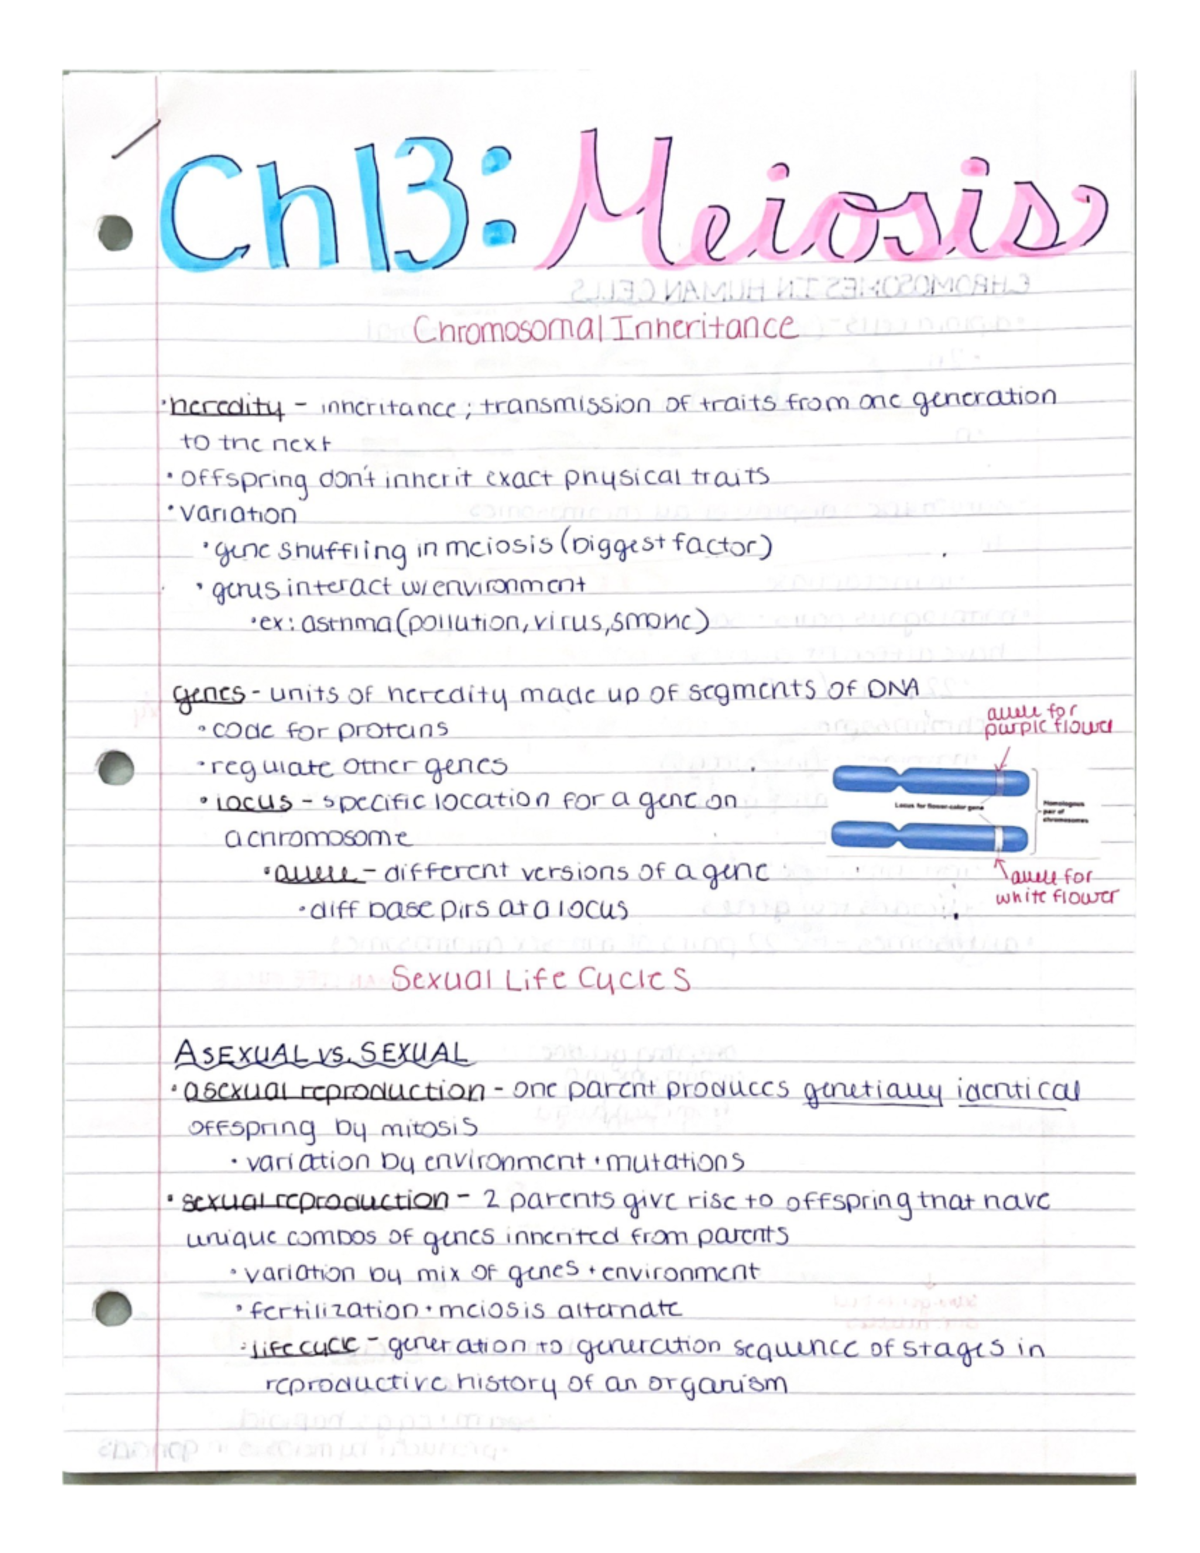 Ch 13: Meiosis
CHROMOSOMES IN HUMAN CELLS
Chromosomal Inheritance
• heredity - inheritance; transmission of traits from one generation
to the next
• offspring don't inherit exact physical traits
• variation
• gene shuffling in meiosis (biggest factor)
• genes interact w/environment
• ex: asthma (pollution, virus, smoke)
genes - units of heredity made up of segments of DNA
• code for proteins
• regulate other genes
• locus - specific location for a gene on
a chromosome
• allele - different versions of a gene
• diff base pirs at a locus
allele for
purple flower
Locus for flower-color gene
Homologous
pair of
chromosomes
allele for
white flower
Sexual Life Cycles
ASEXUAL VS. SEXUAL
• asexual reproduction - one parent produces genetially identical
offspring by mitosis
• variation by environment + mutations
• sexual reproduction - 2 parents give rise to offspring that have
unique combos of genes inherited from parents
• variation by mix of genes + environment
• fertilization + meiosis alternate
• life cycle - generation to generation sequence of stages in
reproductive history of an organism